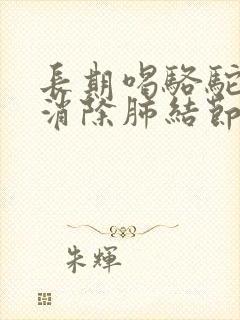 長期喝駱駝
消除肺結節
朱輝